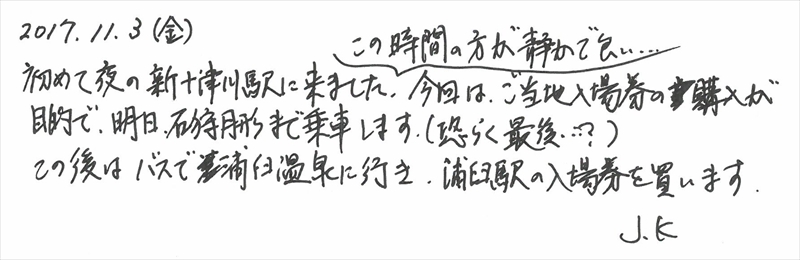 2017.11.3(金)
この時間の方が静かで良い…
初めて夜の新十津川駅に来ました。今回は、ご当地入場券の購入が
目的で、明日、石狩月形まで乗車します。(恐らく最後…?)
この後はバスで浦臼温泉に行き、浦臼駅の入場券を買います。
J.K